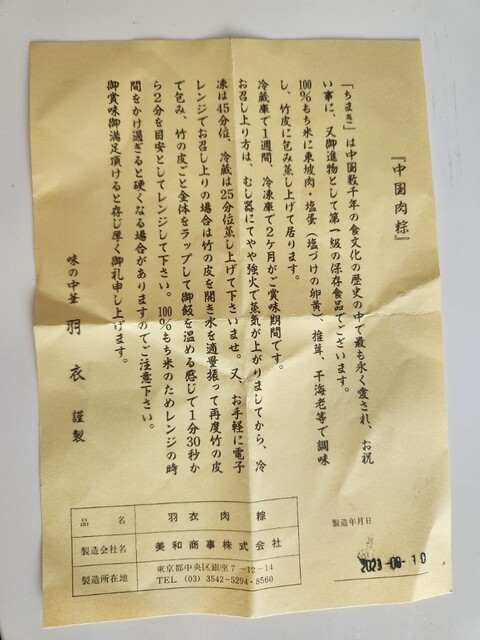 『中国肉粽』
「ちまき」は中国数千年の食文化の歴史の中で最も永く愛され、お祝
い事に、又御進物として第一級の保存食品でございます。
100％もち米に東坡肉・塩蛋（塩づけの卵黄）、椎茸、干海老等で調味
し、竹皮に包み蒸し上げて居ります。
冷蔵庫で1週間、冷凍庫で2ケ月がご賞味期間です。
お召し上り方は、むし器にてやや強火で蒸気が上がりましてから、冷
凍は45分位、冷蔵は25分位蒸し上げて下さいませ。又、お手軽に電子
レンジでお召し上りの場合は竹の皮を開き水を適量振って再度竹の皮
で包み、竹の皮ごと全体をラップして御飯を温める感じで1分30秒か
ら2分を目安としてレンジして下さい。100％もち米のためレンジの時
間をかけ過ぎると硬くなる場合がありますのでご注意下さい。
御賞味御満足頂けると存じ厚く御礼申し上げます。
味の中華 羽衣 謹製
製造年月日
2023-09-10
品名 羽衣肉粽
製造会社名 美和商事株式会社
製造所在地 東京都中央区銀座7-12-14
TEL (03) 3542-5294・8560